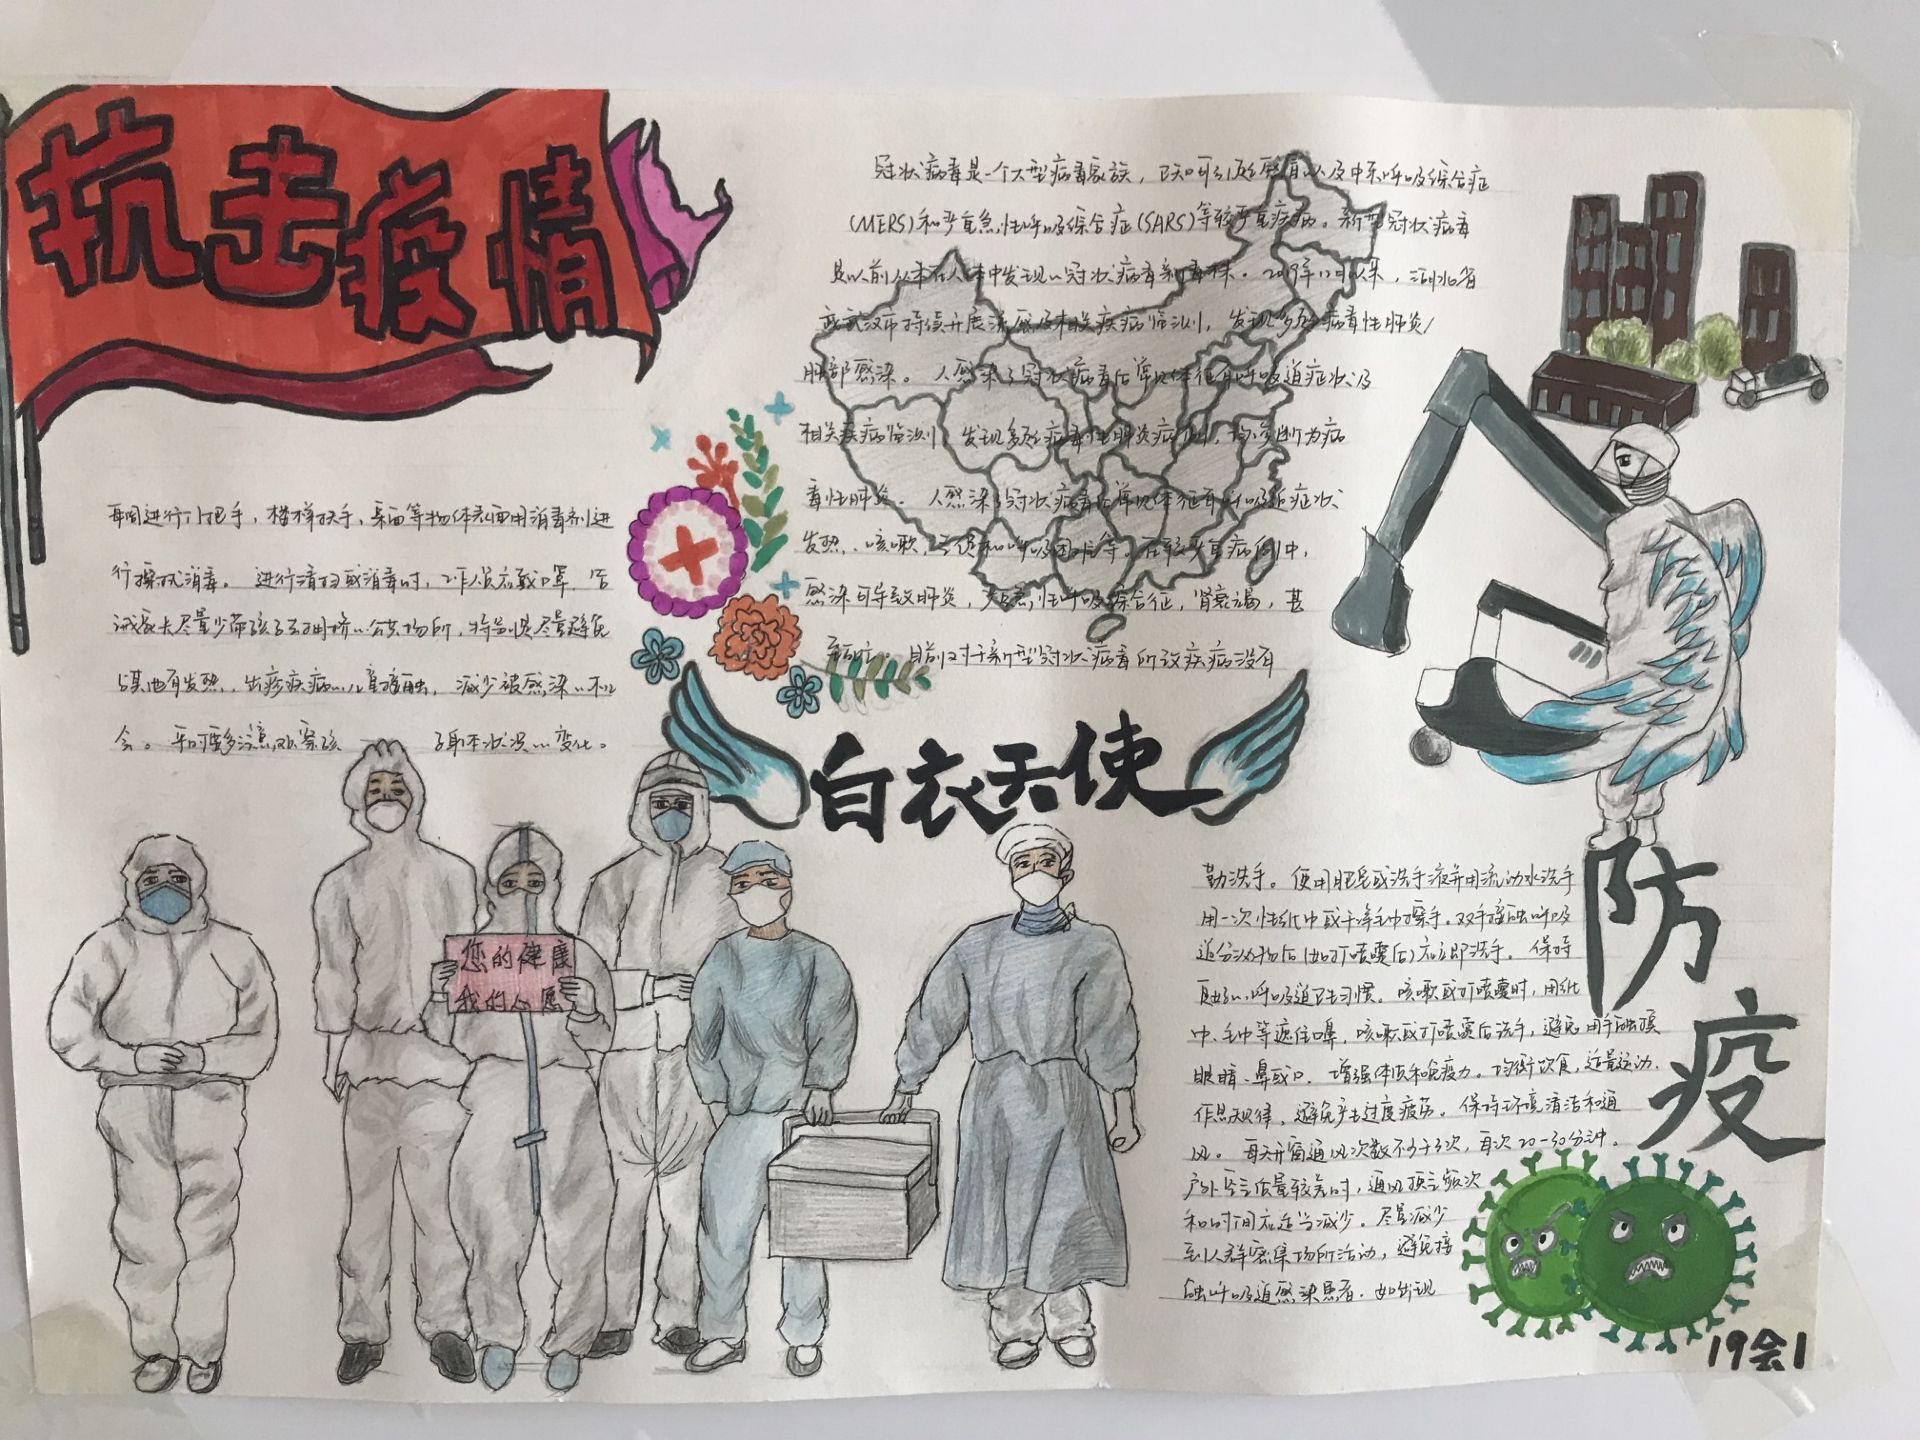 抗击疫情
冠状病毒是一个大型病毒家族，已知可引起感冒以及中东呼吸综合症
(MERS)和严重急性呼吸综合症(SARS)等较严重疾病。新型冠状病毒
是以前从未在人体中发现的冠状病毒新毒株。2019年12月以来，湖北省
武汉市持续开展流感及相关疾病监测，发现多起病毒性肺炎
肺部感染。人感染了冠状病毒后常见体征有呼吸道症状及
相关疾病监测，发现多起病毒性肺炎病例，均诊断为病
毒性肺炎。人感染了冠状病毒后常见体征有呼吸道症状、
发热、咳嗽，气促和呼吸困难等。在较严重病例中，
感染可导致肺炎，严重急性呼吸综合征，肾衰竭，甚
至死亡。目前对于新型冠状病毒所致疾病没有
每周进行门把手，楼梯扶手，桌面等物体表面用消毒剂进
行擦拭消毒。进行清扫或消毒时，工作人员应戴口罩。告
诫家长尽量少带孩子去拥挤的公共场所，特别是尽量避免
与其他有发热、出疹疾病的儿童接触，减少被感染的机
会。平时要多注意观察孩子身体状况的变化。
白衣天使
您的健康
我的心愿
防疫
勤洗手。使用肥皂或洗手液并用流动水洗手
用一次性纸巾或干净毛巾擦手。双手接触呼吸
道分泌物后(如打喷嚏后)应立即洗手。保持
良好的呼吸道卫生习惯。咳嗽或打喷嚏时，用纸
巾、毛巾等遮住口鼻，咳嗽或打喷嚏后洗手，避免用手触摸
眼睛、鼻或口。增强体质和免疫力。均衡饮食，适量运动、
作息规律，避免产生过度疲劳。保持环境清洁和通
风。每天开窗通风次数不少于3次，每次20-30分钟。
户外空气质量较差时，通风换气频次
和时间应适当减少。尽量减少
到人群密集场所活动，避免接
触呼吸道感染患者。如出现
19会1